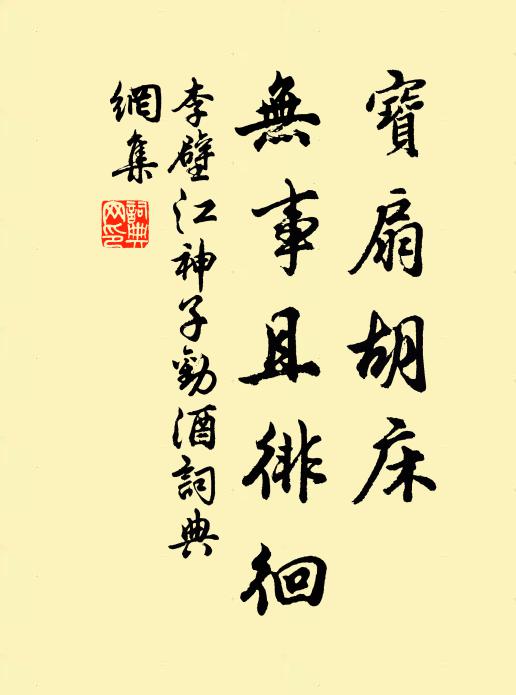 寶扇胡床
無事且徘徊
李壁江神子勸酒詞典
網集
詞典網印